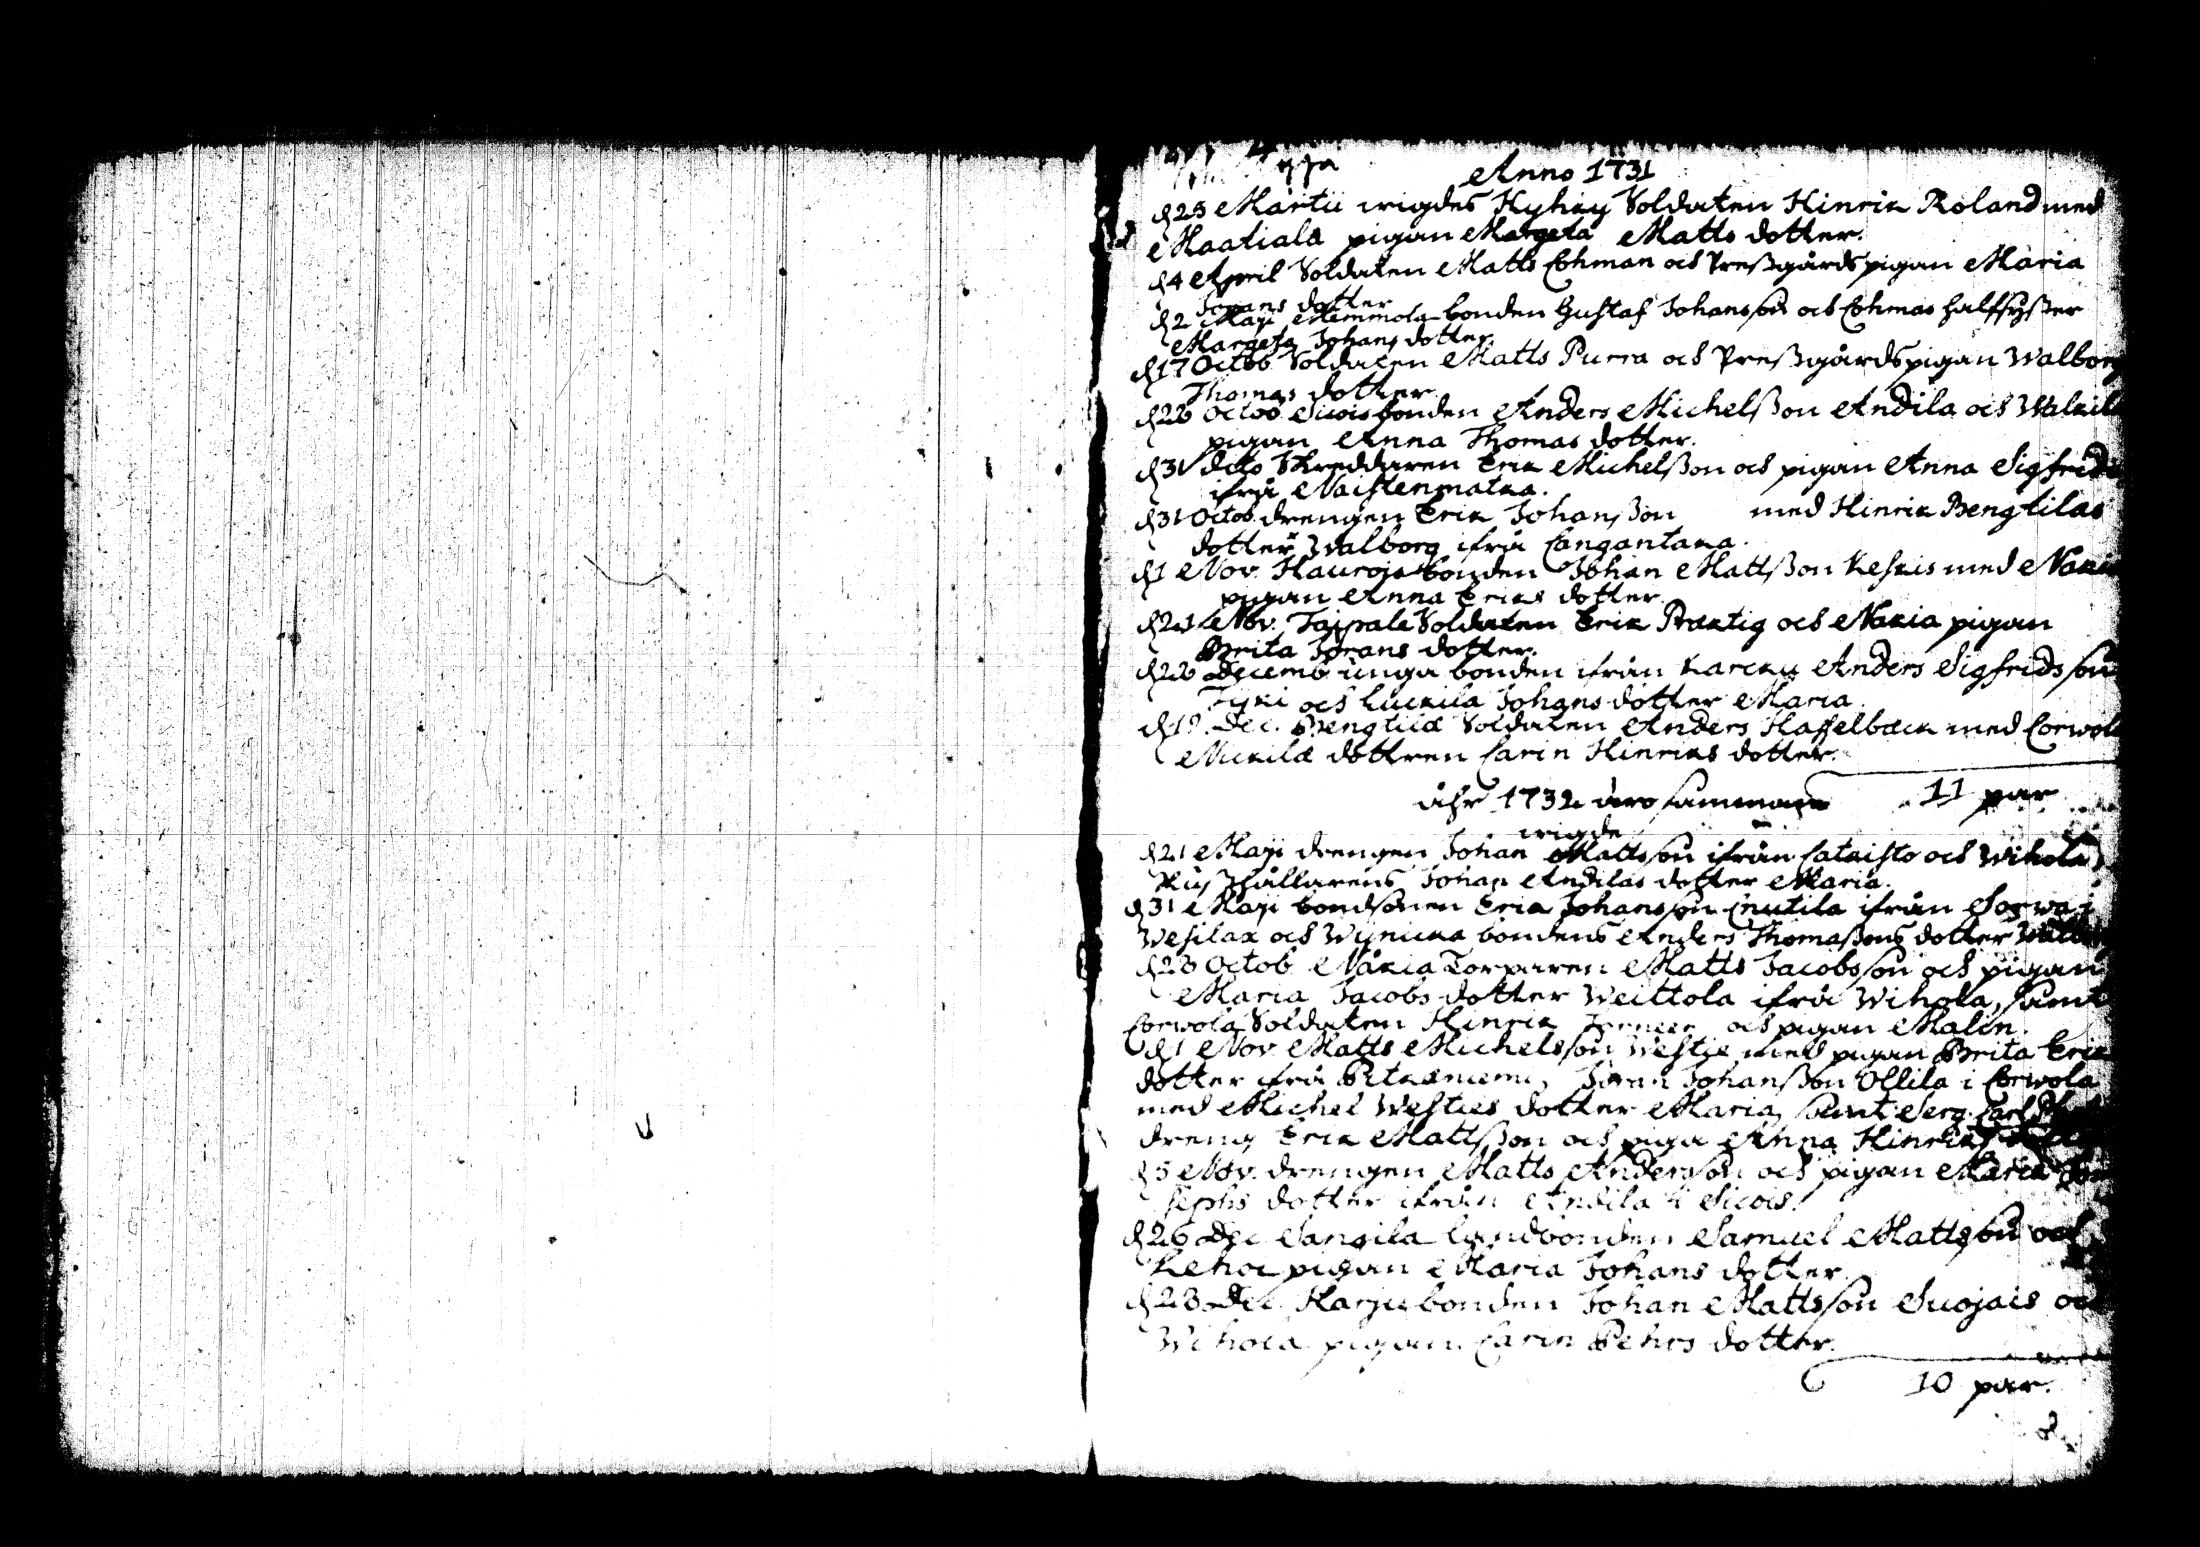 Anno 1731
d 25 Martii wigdes Kyhöy Soldaten Hinrik Roland med
Maatiala pigan Margeta Matts dotter.
d 4 April Soldaten Matts Lohman och Preßgårds pigan Maria
Jörans dotter
d 2 Maji Memmola bonden Gustaf Johansson och Lohmas halfsyßer
Margeta Johans dotter.
d 17 Octob Soldaten Matts Purra och Preßgårds pigan Walborg
Thomas dotter
d 26 Octob. Sicois bonden Anders Michelsson Andila och
pigan Anna Thomas dotter.
d 31 dito Skreddaren Erik Michelsson och pigan Anna Sigfrids
ifrå Naistenmatka.
d 31 Octob. drengen Erik Johansson med Hinrik Bengtilas
dotter Walborg ifrå Langantaka.
d 1 Nov. Hauroja bonden Johan Mattsson Keskis med
pigan Anna Eriks dotter
d 21 Nov. Taipale Soldaten Erik Praktig och Nakia pigan
Brita Jörans dotter.
d 26 Decemb unga bonden ifrån Karcku Anders Sigfridsson
Tyri och Luckila Johans dotter Maria.
Dec. Bengtila Soldaten Anders Hasselback med Corwola
Nickila dottren Carin Hinriks dotter.
11 par
åhr 1732 äro samman
wigde
d 21 Maji drengen Johan Mattsson ifrån Lataisto och Wihola
Johan Andilas dotter Maria.
d 31 Maji bondsonen Erik Johansson Cnutila ifrån Sorwa i
Wesilax och Wijnicka bondens Anders Thomassons dotter
d 28 Octob Nåkia Torparen Matts Jacobsson och pigan
Maria Jacobs dotter Weittola ifrå Wihola, samt
Corwola Soldaten Hinrik och pigan Malin.
d 1 Nov. Matts Michelsson Westie med pigan Brita Eriks
dotter ifrå Pitkäniemi, Jöran Johansson Ollila i Corwola
med Michel Westies dotter Maria, samt Serg. Carl
dreng Erik Mattsson och piga Anna Hinriks
d 5 Nov. drengen Matts Andersson och pigan Maria Jo
sephs dotter ifrån Andila i Sicois.
d 26 Dec Landbonden Samuel Mattsson och
Lehoi pigan Maria Johans dotter
d 28 Dec. Harju bonden Johan Mattsson Suojais och
Wihola pigan Carin Pehrs dotter.
10 par.